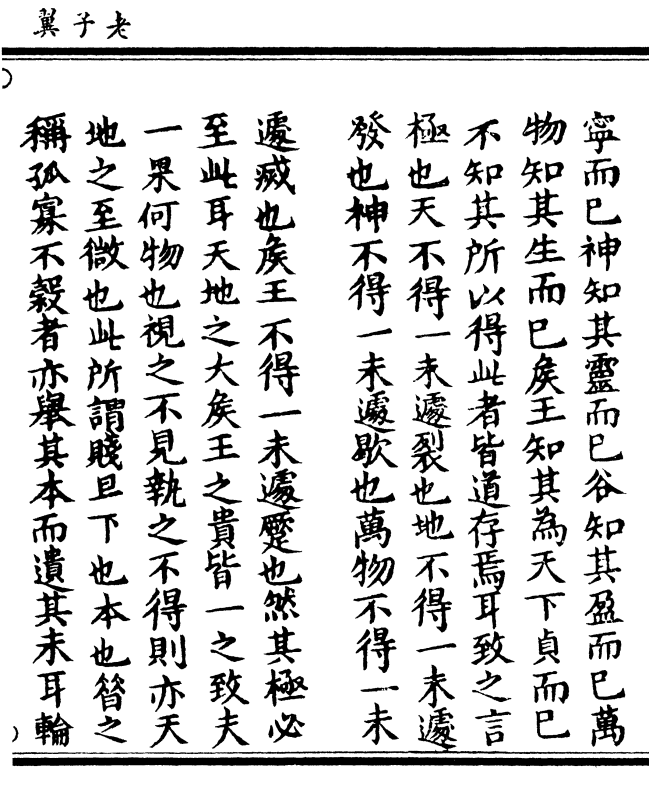 老子翼
寧而已神知其靈而已谷知其盈而已萬
物知其生而已矦王知其為天下貞而已
不知其所以得此者皆道存焉耳致之言
極也天不得一未遽裂也地不得一未遽
發也神不得一未遽歇也萬物不得一未
遽滅也矦王不得一未遽蹷也然其極必
至此耳天地之大矦王之貴皆一之致夫
一果何物也視之不見執之不得則亦天
地之至微也此所謂賤且下也本也昝之
稱孤寡不糓者亦舉其本而遺其末耳輪